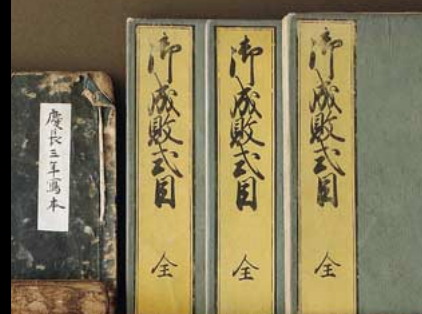 慶長三年寫本
御成敗式目 全
御成敗式目 全
御成敗式目 全